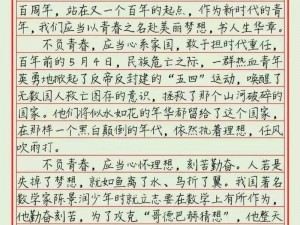 百周年，站在又一个百年的起点，作为新时代的青
年，我们应当以青春之名赴美丽梦想，书人生华章。
不负青春，应当心系家国，敢于担时代重任，
百年前的5月4日，民族危亡之际，一群热血青年
英勇地掀起了反帝反封建的“五四”运动，唤醒了
无数国人救亡图存的意识，拯救了那个山河破碎的
国家。他们将似水如花的年华都留给了这个国家，
在那样一个黑白颠倒的年代，依然执着理想，任风
吹雨打。
不负青春，应当心怀理想，刻苦勤奋。人若是
失掉了梦想，就如鱼离了水、鸟折了翼。我国著名
数学家陈景润少年时就立志要在数学上有所作为，
他勤奋刻苦，为了攻克“哥德巴赫猜想”，他整天